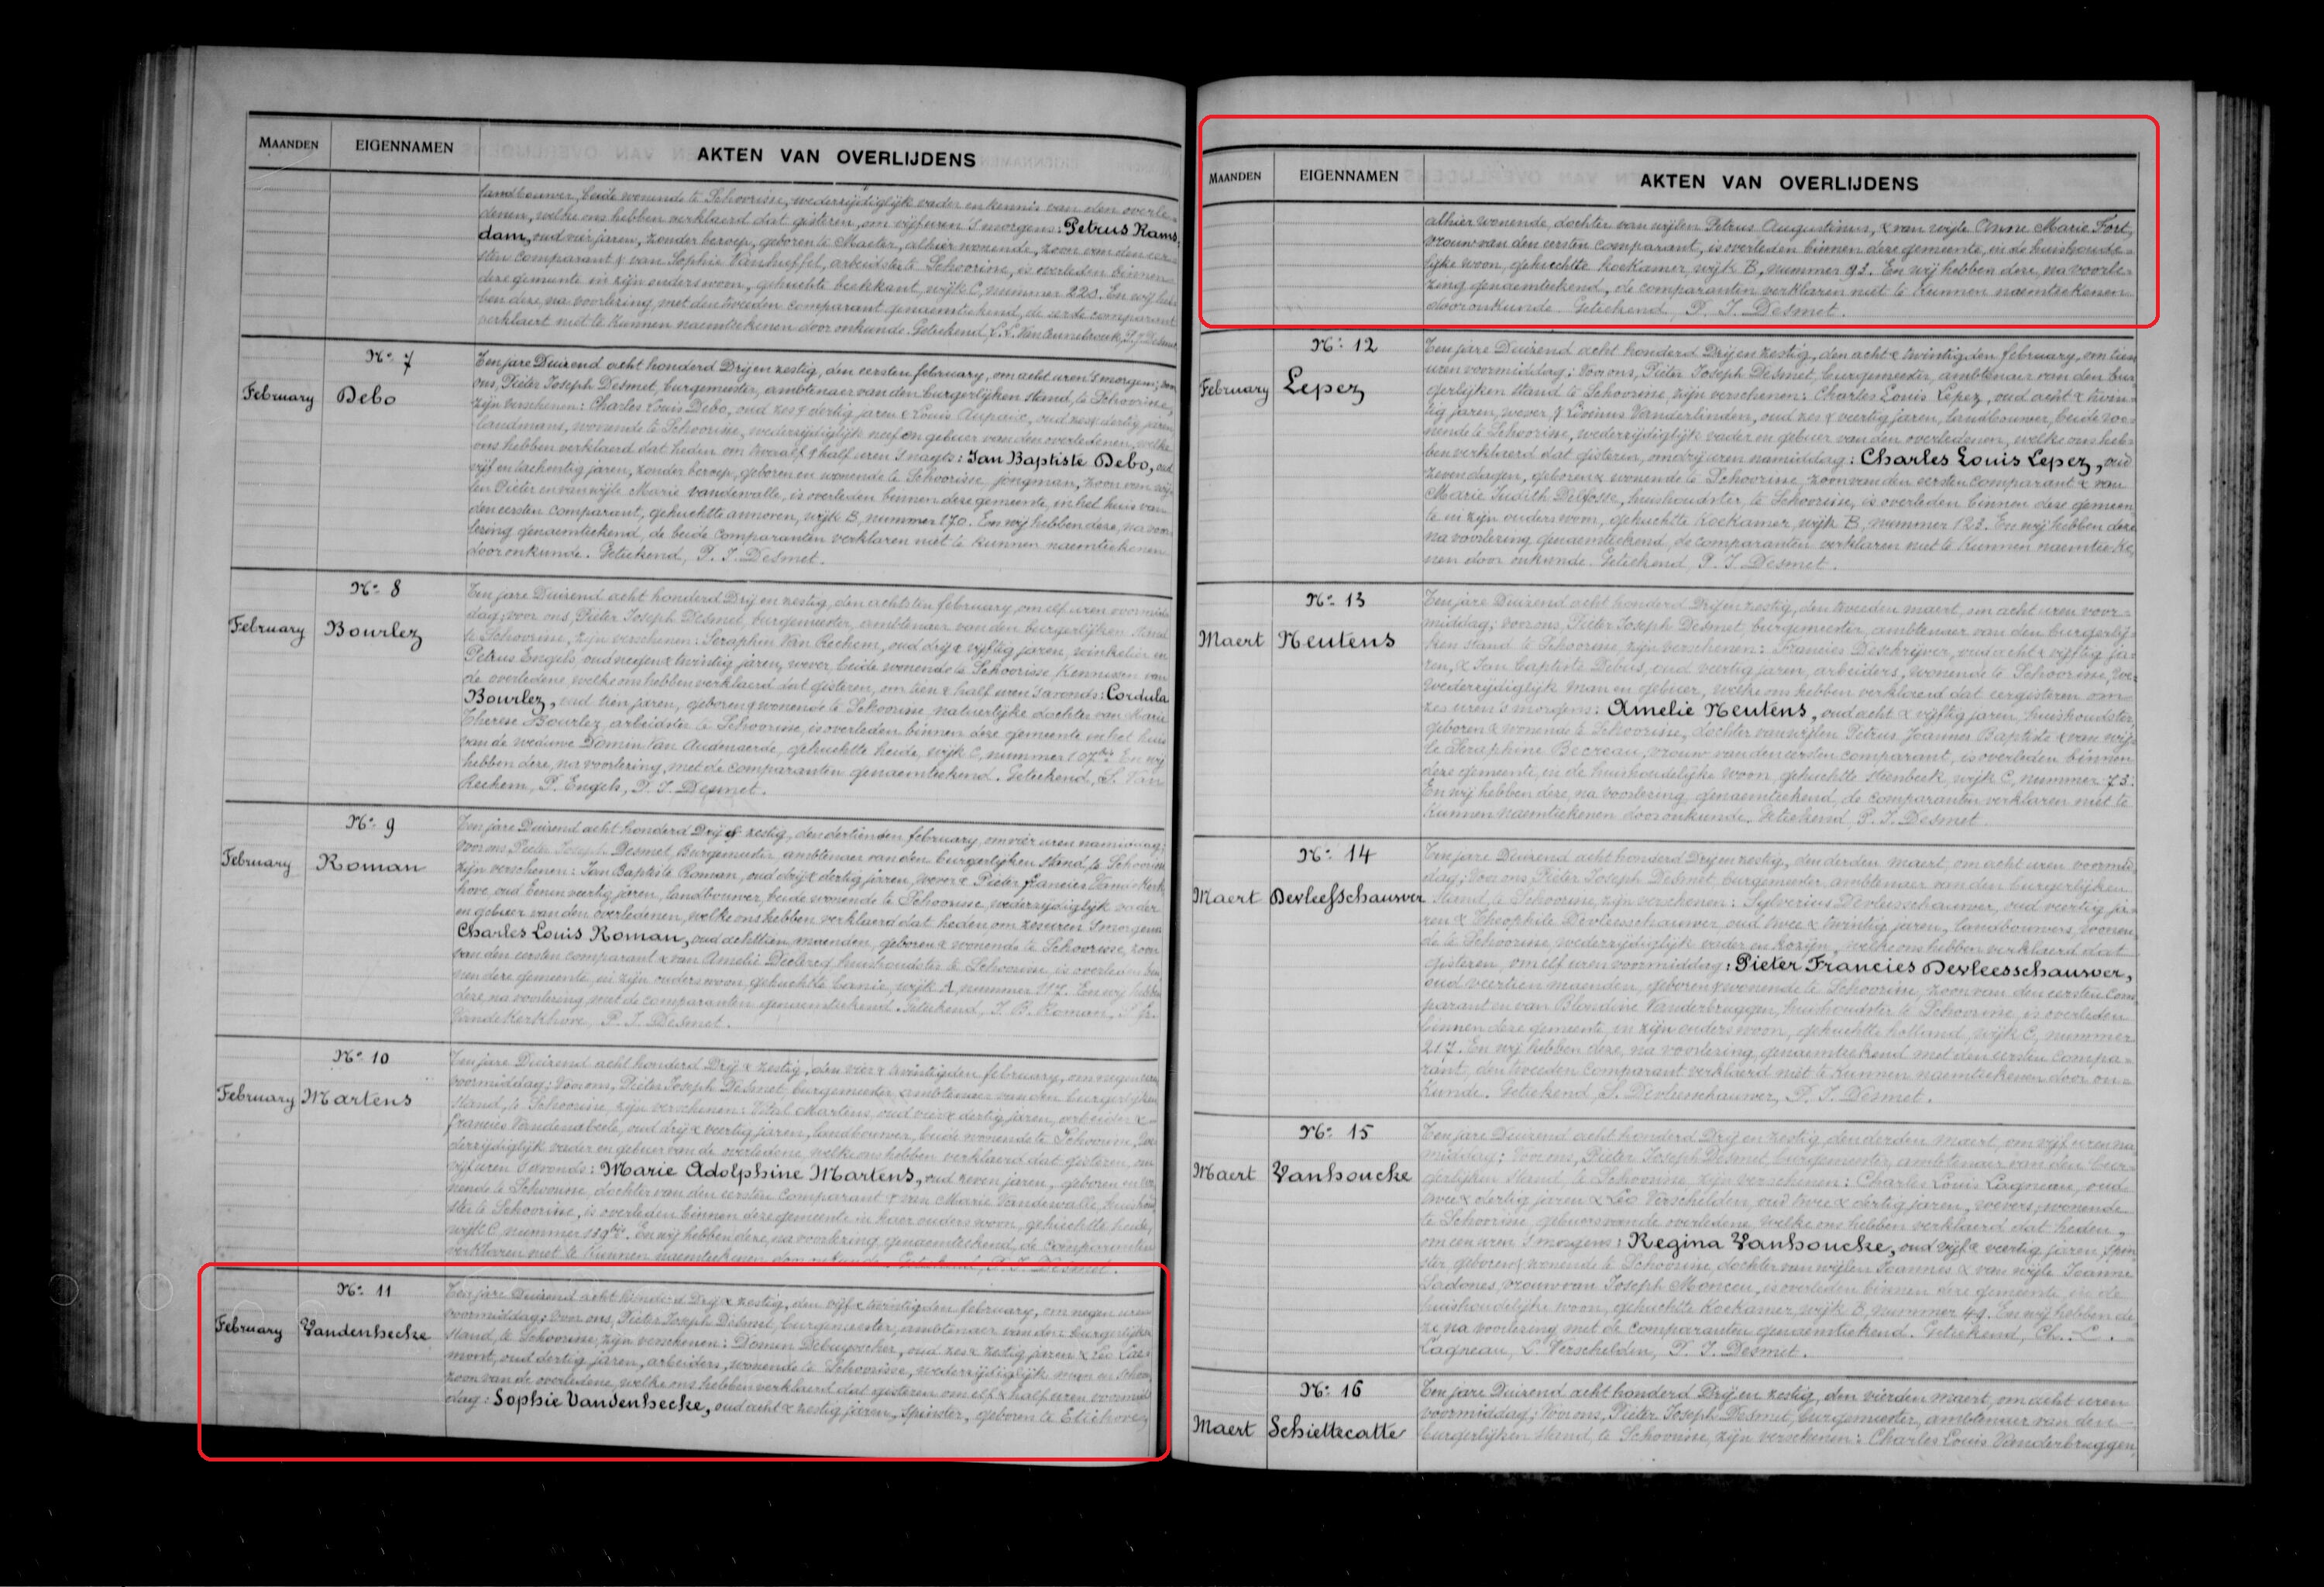 MAANDEN EIGENNAMEN AKTEN VAN OVERLIJDENS
landbouwer, beide wonende te Schoorisse, wederzijdiglijk vader en kennis van den overle-
denen, welke ons hebben verklaerd dat gisteren, om vijf uren 's morgens: Petrus Rams-
dam, oud vier jaren, zonder beroep, geboren te Maeter, alhier wonende, zoon van den eer-
sten comparant & van Sophie Vanhuffel, arbeidster te Schoorisse, is overleden binnen
deze gemeente in zijn ouders woon, gehuchte boekkant, wijk C, nummer 220. En wij heb-
ben deze, na voorlezing, met den tweeden comparant genaemteekend, de eerste comparant
verklaert niet te kunnen naemteekenen door onkunde. Geteekend,
N° 7
February Debo
Ten jare Duizend acht honderd Drij en zestig, den eersten february, om acht uren 's morgens; voor
ons, Pieter Joseph Desmet, burgemeester, ambtenaer van den burgerlijken stand, te Schoorisse,
zijn verschenen: Charles Louis Debo, oud zes & dertig jaren & Louis oud zes & dertig jaren,
landmans, wonende te Schoorisse, wederzijdiglijk neef en gebuer van den overledenen, welke
ons hebben verklaerd dat heden om twaalf & half uren 's nagts: Jan Baptiste Debo, oud
vijf en tachentig jaren, zonder beroep, geboren en wonende te Schoorisse jongman, zoon van wij-
len Pieter en van wijle Marie Vandewalle, is overleden binnen deze gemeente, in het huis van
den eersten comparant, gehuchte annoven, wijk B, nummer 170. En wij hebben deze, na voor-
lezing genaemteekend, de beide comparanten verklaren niet te kunnen naemteekenen
door onkunde. Geteekend, P. J. Desmet.
N° 8
February Bourlez
Ten jare Duizend acht honderd Drij en zestig, den achtsten february, om elf uren voormid-
dag; voor ons, Pieter Joseph Desmet, burgemeester, ambtenaer van den burgerlijken stand
te Schoorisse, zijn verschenen: Seraphin Van Rechem, oud drij & vijftig jaren, winkelier en
Petrus Engels, oud negen & twintig jaren, wever, beide wonende te Schoorisse, kennissen van
de overledene, welke ons hebben verklaerd dat gisteren, om tien & half uren 's avonds: Cordula
Bourlez, oud tien jaren, geboren & wonende te Schoorisse, natuerlijke dochter van Marie
Therese Bourlez, arbeidster te Schoorisse, is overleden binnen deze gemeente in het huis
van de weduwe Domin Van Audenaerde, gehuchte heide, wijk C, nummer 107bis. En wij
hebben deze, na voorlezing, met de comparanten genaemteekend. Geteekend, S. Van
Rechem, P. Engels, P. J. Desmet.
N° 9
February Roman
Ten jare Duizend acht honderd Drij & zestig, den dertienden february, om vier uren namiddag;
voor ons Pieter Joseph Desmet, Burgemeester, ambtenaer van den burgerlijken stand, te Schoorisse
zijn verschenen: Jan Baptiste Roman, oud drij & dertig jaren, wever & Pieter Francies Vande Kerk-
hove, oud Een en veertig jaren, landbouwer, beide wonende te Schoorisse, wederzijdiglijk vader
en gebuer van den overledenen, welke ons hebben verklaerd dat heden om zes uren 's morgens
Charles Louis Roman, oud achttien maenden, geboren & wonende te Schoorisse, zoon
van den eersten comparant & van Amelie Declercq huishoudster te Schoorisse, is overleden bin-
nen deze gemeente, in zijn ouders woon, gehuchte bosnie, wijk A, nummer 117. En wij hebben
deze na voorlezing met de comparanten genaemteekend. Geteekend, J. B. Roman, P. fr.
Vande Kerkhove, P. J. Desmet.
N° 10
February Martens
Ten jare Duizend acht honderd Drij & zestig, den vier & twintigden february, om negen uren
voormiddag; Voor ons, Pieter Joseph Desmet, burgemeester, ambtenaer van den burgerlijken
stand, te Schoorisse, zijn verschenen: Vital Martens, oud vier & dertig jaren, arbeider &
francies Vandenabeele, oud drij & veertig jaren, landbouwer, beide wonende te Schoorisse, we-
derzijdiglijk vader en gebuer van de overledene, welke ons hebben verklaerd dat gisteren, om
vijf uren 's avonds: Marie Adolphine Martens, oud zeven jaren, geboren en wo-
nende te Schoorisse, dochter van den eersten comparant & van Marie Vandewalle, huishoud-
ster te Schoorisse, is overleden binnen deze gemeente in haer ouders woon, gehuchte heide,
wijk C nummer 189bis. En wij hebben deze, na voorlezing, genaemteekend, de comparanten
verklaren niet te kunnen naemteekenen door onkunde. Geteekend, P. J. Desmet.
N° 11
February Vandenhecke
Ten jare Duizend acht honderd Drij & zestig, den vijf & twintigden february, om negen uren
voormiddag; Voor ons, Pieter Joseph Desmet, burgemeester, ambtenaer van den burgerlijken
stand, te Schoorisse, zijn verschenen: Domin Debruyvscher, oud zes & zestig jaren & Leo Lae-
mont, oud dertig jaren, arbeiders, wonende te Schoorisse, wederzijdiglijk man en schoon-
zoon van de overledene, welke ons hebben verklaerd dat gisteren om elf & half uren voormid-
dag: Sophie Vandenhecke, oud acht & zestig jaren, spinster, geboren te Etichove,
MAANDEN EIGENNAMEN AKTEN VAN OVERLIJDENS
alhier wonende, dochter van wijlen Petrus Augustinus, & van wijle Anne Marie Fort,
vrouw van den eersten comparant, is overleden binnen deze gemeente, in de huishoude-
lijke woon, gehuchtte koekamer, wijk B, nummer 93. En wij hebben deze, na voorle-
zing genaemteekend, de comparanten verklaren niet te kunnen naemteekenen
door onkunde. Geteekend, P. J. Desmet.
N° 12
February Lepez
Ten jare Duizend acht honderd Drij en zestig, den acht & twintigden february, om tien
uren voormiddag; Voor ons, Pieter Joseph Desmet, burgemeester, ambtenaer van den bur-
gerlijken stand te Schoorisse, zijn verschenen: Charles Louis Lepez, oud acht & twin-
tig jaren, wever & Livinus Vanderlinden, oud zes & veertig jaren, landbouwer, beide wo-
nende te Schoorisse, wederzijdiglijk vader en gebuer van den overledenen, welke ons heb-
ben verklaerd dat gisteren, om drij uren namiddag: Charles Louis Lepez, oud
zeven dagen, geboren & wonende te Schoorisse, zoon van den eersten comparant & van
Marie Judith Delfosse, huishoudster, te Schoorisse, is overleden binnen deze gemeen-
te in zijn ouders woon, gehuchtte Koekamer, wijk B, nummer 123. En wij hebben deze
na voorlezing genaemteekend, de comparanten verklaren niet te kunnen naemteeke-
nen door onkunde. Geteekend P. J. Desmet.
N° 13
Maert Neutens
Ten jare Duizend acht honderd Drij en zestig, den tweeden maert, om acht uren voor-
middag; voor ons, Pieter Joseph Desmet, burgemeester, ambtenaer van den burgerlij-
ken stand te Schoorisse, zijn verschenen: Francies Deschrijver, oud acht & vijftig ja-
ren, & Jan baptiste Debus, oud veertig jaren, arbeiders, wonende te Schoorisse, we-
derzijdiglijk man en gebuer, welke ons hebben verklaerd dat eergisteren om
zes uren 's morgens: Amelie Neutens, oud acht & vijftig jaren, huishoudster,
geboren & wonende te Schoorisse, dochter van wijlen Petrus Joannes Baptiste & van wij-
le Seraphine Becreau, vrouw van den eersten comparant, is overleden binnen
deze gemeente, in de huishoudelijke woon, gehuchtte steenbeek, wijk C, nummer 73.
En wij hebben deze, na voorlezing, genaemteekend, de comparanten verklaren niet te
kunnen naemteekenen door onkunde. Geteekend, P. J. Desmet.
N° 14
Maert Devleesschauwer
Ten jare Duizend acht honderd Drij en zestig, den derden maert, om acht uren voormid-
dag; Voor ons, Pieter Joseph Desmet burgemeester, ambtenaer van den burgerlijken
Stand, te Schoorisse, zijn verschenen: Sylverius Devleesschauwer, oud veertig ja-
ren & Theophile Devleesschauwer oud twee & twintig jaren, landbouwers, woonen-
de te Schoorisse wederzijdiglijk vader en kozijn, welke ons hebben verklaerd dat
gisteren, om elf uren voormiddag: Pieter Francies Devleesschauwer,
oud veertien maenden, geboren & wonende te Schoorisse, zoon van den eersten com-
parant en van Blondine Vanderbruggen, huishoudster te Schoorisse, is overleden
binnen deze gemeente, in zijn ouders woon, gehuchtte holland, wijk C, nummer
217. En wij hebben deze, na voorlezing genaemteekend met den eersten compa-
rant, den tweeden comparant verklaerd niet te kunnen naemteekenen door on-
kunde. Geteekend, S. Devleesschauwer, P. J. Desmet.
N° 15
Maert Vanhoucke
Ten jare Duizend acht honderd Drij en zestig, den derden maert, om vijf uren na-
middag; Voor ons, Pieter Joseph Desmet, burgemeester, ambtenaer van den bur-
gerlijken stand, te Schoorisse, zijn verschenen: Charles Louis Lagneau, oud
twee & dertig jaren & Leo Verschelden, oud twee & dertig jaren, wevers, wonende
te Schoorisse, gebuers van de overledene, welke ons hebben verklaerd dat heden,
om een uren 's morgens: Regina Vanhoucke, oud vijf & veertig jaren, spin-
ster, geboren & wonende te Schoorisse, dochter van wijlen Joannes & van wijle Joanne
Sadones, vrouw van Joseph Monceu, is overleden binnen deze gemeente, in de
huishoudelijke woon, gehuchtte Koekamer, wijk B, nummer 49. En wij hebben de-
ze na voorlezing met de comparanten genaemteekend. Geteekend, Ch. L.
Lagneau, L. Verschelden, P. J. Desmet.
N° 16
Maert Schiettecatte
Ten jare Duizend acht honderd Drij en zestig, den vierden maert, om acht uren
voormiddag; Voor ons, Pieter Joseph Desmet, burgemeester, ambtenaer van den
burgerlijken stand, te Schoorisse, zijn verschenen: Charles Louis Vanderbruggen,